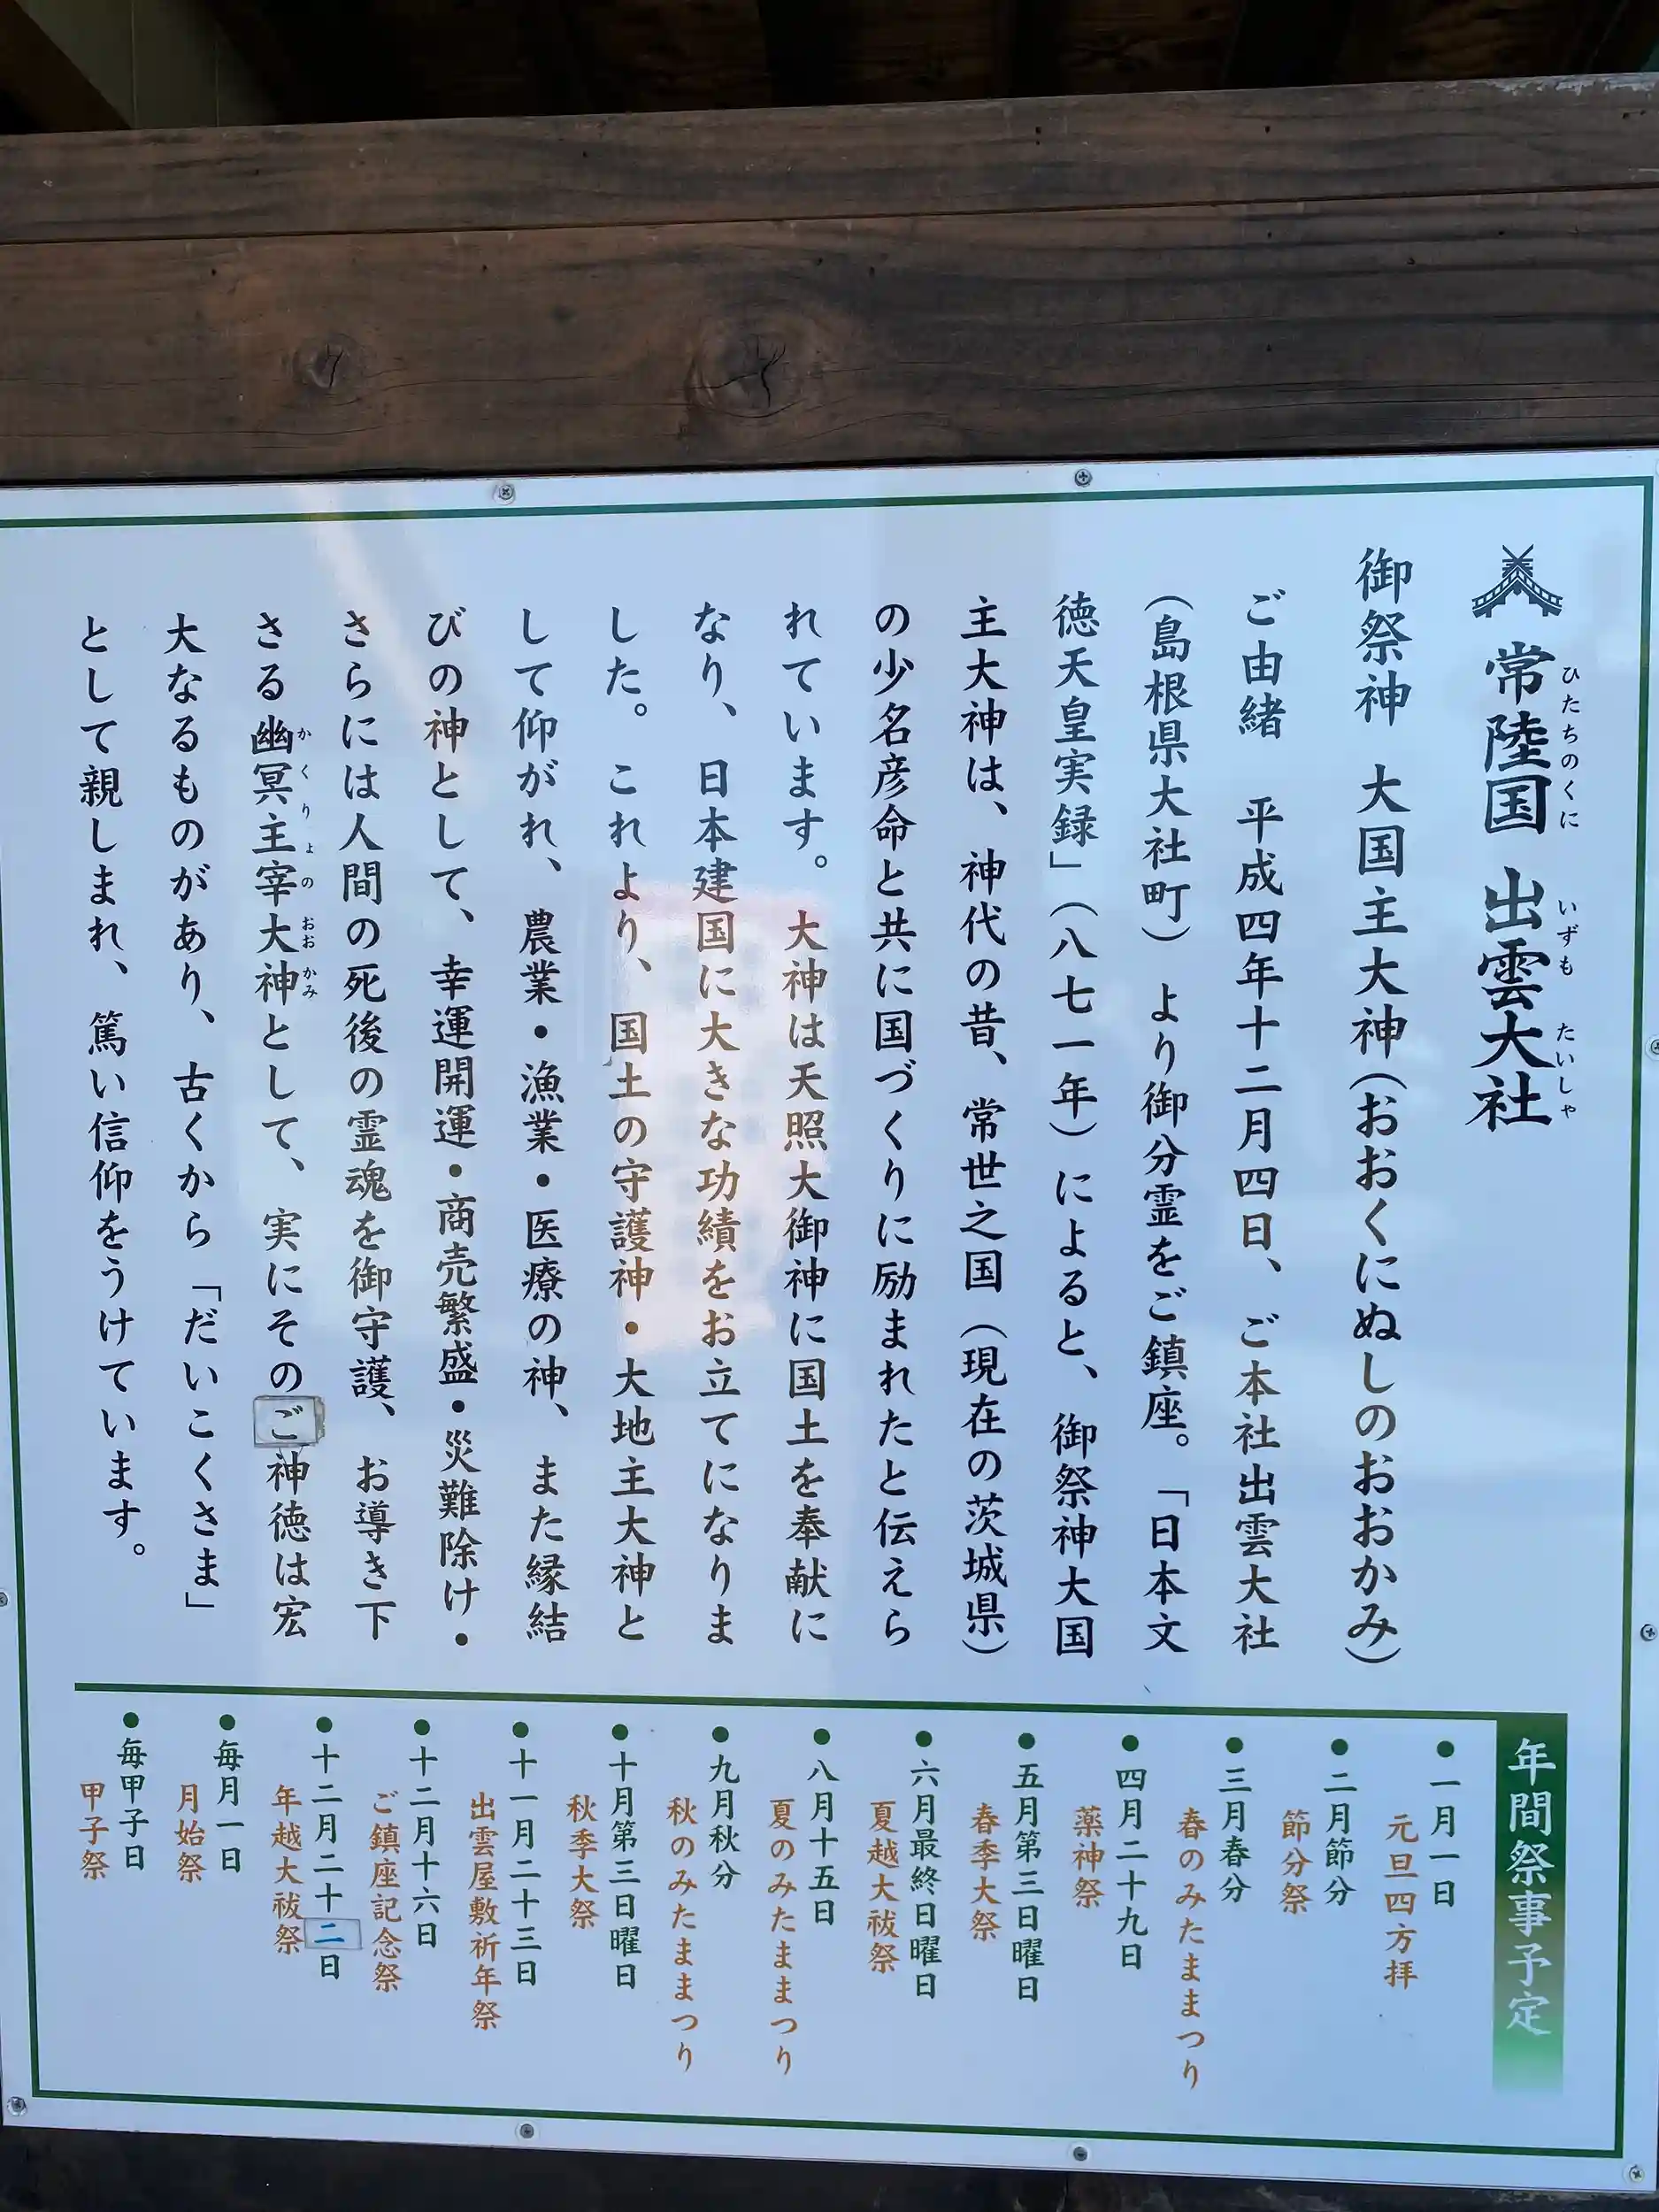 常陸国 出雲大社
ひたちのくに いずも たいしゃ
御祭神 大国主大神(おおくにぬしのおおかみ)
ご由緒 平成四年十二月四日、ご本社出雲大社
(島根県大社町)より御分霊をご鎮座。「日本文
徳天皇実録」(八七一年)によると、御祭神大国
主大神は、神代の昔、常世之国(現在の茨城県)
の少名彦命と共に国づくりに励まれたと伝えら
れています。 大神は天照大御神に国土を奉献に
なり、日本建国に大きな功績をお立てになりま
した。これより、国土の守護神・大地主大神と
して仰がれ、農業・漁業・医療の神、また縁結
びの神として、幸運開運・商売繁盛・災難除け・
さらには人間の死後の霊魂を御守護、お導き下
さる幽冥主宰大神として、実にそのご神徳は宏
かくりよのおおかみ
大なるものがあり、古くから「だいこくさま」
として親しまれ、篤い信仰をうけています。
年間祭事予定
●一月一日
元旦四方拝
●二月節分
節分祭
●三月春分
春のみたままつり
●四月二十九日
薬神祭
●五月第三日曜日
春季大祭
●六月最終日曜日
夏越大祓祭
●八月十五日
夏のみたままつり
●九月秋分
秋のみたままつり
●十月第三日曜日
秋季大祭
●十一月二十三日
出雲屋敷祈年祭
●十二月十六日
ご鎮座記念祭
●十二月二十二日
年越大祓祭
●毎月一日
月始祭
●毎甲子日
甲子祭